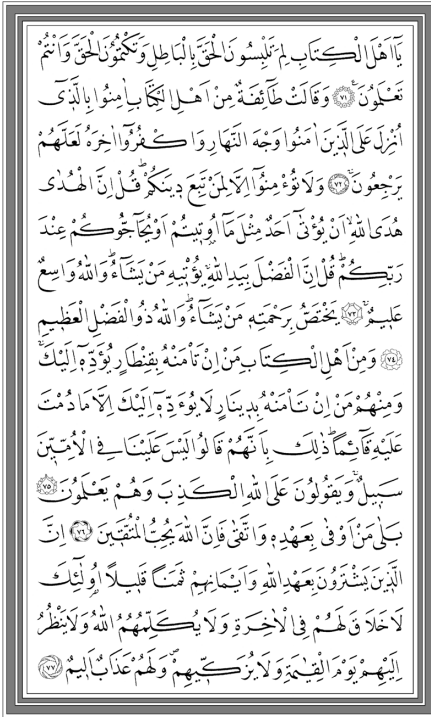 يَٓا اَهْلَ الْكِتَابِ لِمَ تَلْبِسُونَ الْحَقَّ بِالْبَاطِلِ وَتَكْتُمُونَ الْحَقَّ وَاَنْتُمْ
تَعْلَمُونَ۟ ﴿٧١﴾ وَقَالَتْ طَٓائِفَةٌ مِنْ اَهْلِ الْكِتَابِ اٰمِنُوا بِالَّذ۪ٓي
اُنْزِلَ عَلَى الَّذ۪ينَ اٰمَنُوا وَجْهَ النَّهَارِ وَاكْفُرُٓوا اٰخِرَهُ لَعَلَّهُمْ
يَرْجِعُونَۚ ﴿٧٢﴾ وَلَا تُؤْمِنُٓوا اِلَّا لِمَنْ تَبِعَ د۪ينَكُمْۜ قُلْ اِنَّ الْهُدٰى
هُدَى اللّٰهِۙ اَنْ يُؤْتٰٓى اَحَدٌ مِثْلَ مَٓا اُو۫ت۪يتُمْ اَوْ يُحَٓاجُّوكُمْ عِنْدَ
رَبِّكُمْۜ قُلْ اِنَّ الْفَضْلَ بِيَدِ اللّٰهِۚ يُؤْت۪يهِ مَنْ يَشَٓاءُۜ وَاللّٰهُ وَاسِعٌ
عَل۪يمٌۚ ﴿٧٣﴾ يَخْتَصُّ بِرَحْمَتِه۪ مَنْ يَشَٓاءُۜ وَاللّٰهُ ذُو الْفَضْلِ الْعَظ۪يمِ
﴿٧٤﴾ وَمِنْ اَهْلِ الْكِتَابِ مَنْ اِنْ تَأْمَنْهُ بِقِنْطَارٍ يُؤَدِّه۪ٓ اِلَيْكَۚ
وَمِنْهُمْ مَنْ اِنْ تَأْمَنْهُ بِد۪ينَارٍ لَا يُؤَدِّه۪ٓ اِلَيْكَ اِلَّا مَا دُمْتَ
عَلَيْهِ قَٓائِمًاۜ ذٰلِكَ بِاَنَّهُمْ قَالُوا لَيْسَ عَلَيْنَا فِي الْاُمِّيّ۪نَ
سَب۪يلٌۚ وَيَقُولُونَ عَلَى اللّٰهِ الْكَذِبَ وَهُمْ يَعْلَمُونَ ﴿٧٥﴾
بَلٰى مَنْ اَوْفٰى بِعَهْدِه۪ وَاتَّقٰى فَاِنَّ اللّٰهَ يُحِبُّ الْمُتَّق۪ينَ ﴿٧٦﴾ اِنَّ
الَّذ۪ينَ يَشْتَرُونَ بِعَهْدِ اللّٰهِ وَاَيْمَانِهِمْ ثَمَنًا قَل۪يلًا اُو۬لٰٓئِكَ
لَا خَلَاقَ لَهُمْ فِي الْاٰخِرَةِ وَلَا يُكَلِّمُهُمُ اللّٰهُ وَلَا يَنْظُرُ
اِلَيْهِمْ يَوْمَ الْقِيٰمَةِ وَلَا يُزَكّ۪يهِمْۖ وَلَهُمْ عَذَابٌ اَل۪يمٌ ﴿٧٧﴾